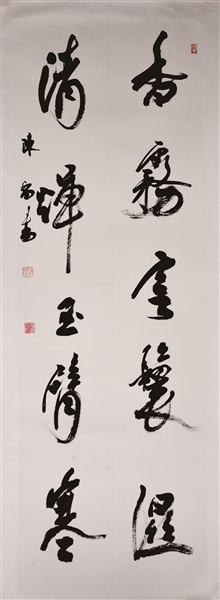 香霧雲鬟濕
清輝玉臂寒